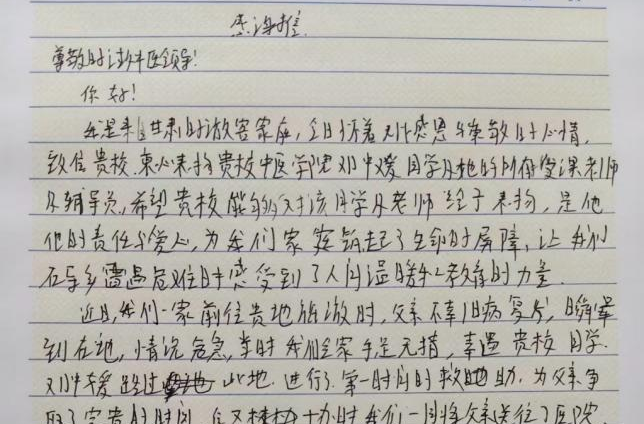 感谢信
尊敬的 领导!
你好!
我是来自甘肃的游客家庭,今日怀着对 感恩与崇敬的心情,
致信贵校,衷心表扬贵校中医学院邓中媛同学及她的所有授课老师
及辅导员,希望贵校能够对该同学及老师给予表扬,是他
他的责任与爱心,为我们家庭筑起了生命的屏障,让我们
在异乡遭遇危难时感受到了人间温暖和教育的力量.
近日,我们一家前往贵地旅游时,父亲不幸旧病复发,晕
倒在地,情况危急,当时我们全家手足无措,幸遇贵校同学
邓中媛路过 此地.进行了第一时间的救 助.为父亲争
取了宝贵的时间, 我们一同将父亲送往了医院.